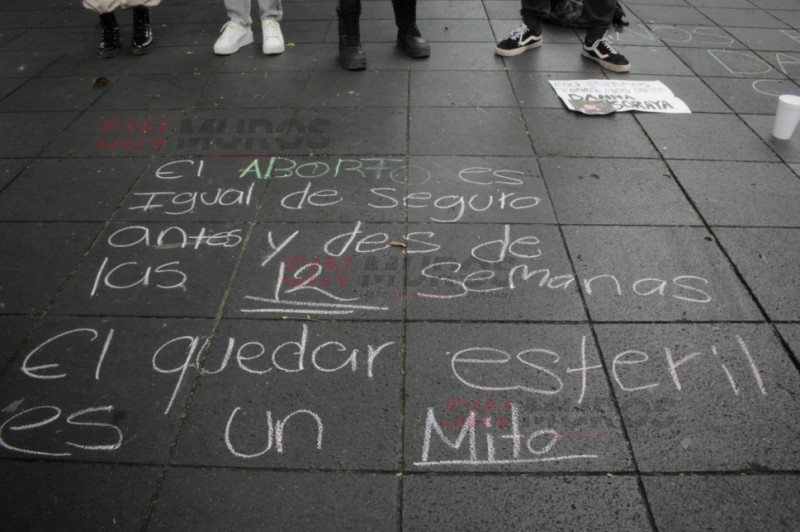 El ABORTO es
Igual de Seguro
antes y des de
las 12 Semanas
El quedar esteril
es un Mito
DANNA
SORAYA
SIN MUROS
SIN MUROS
SIN MUROS